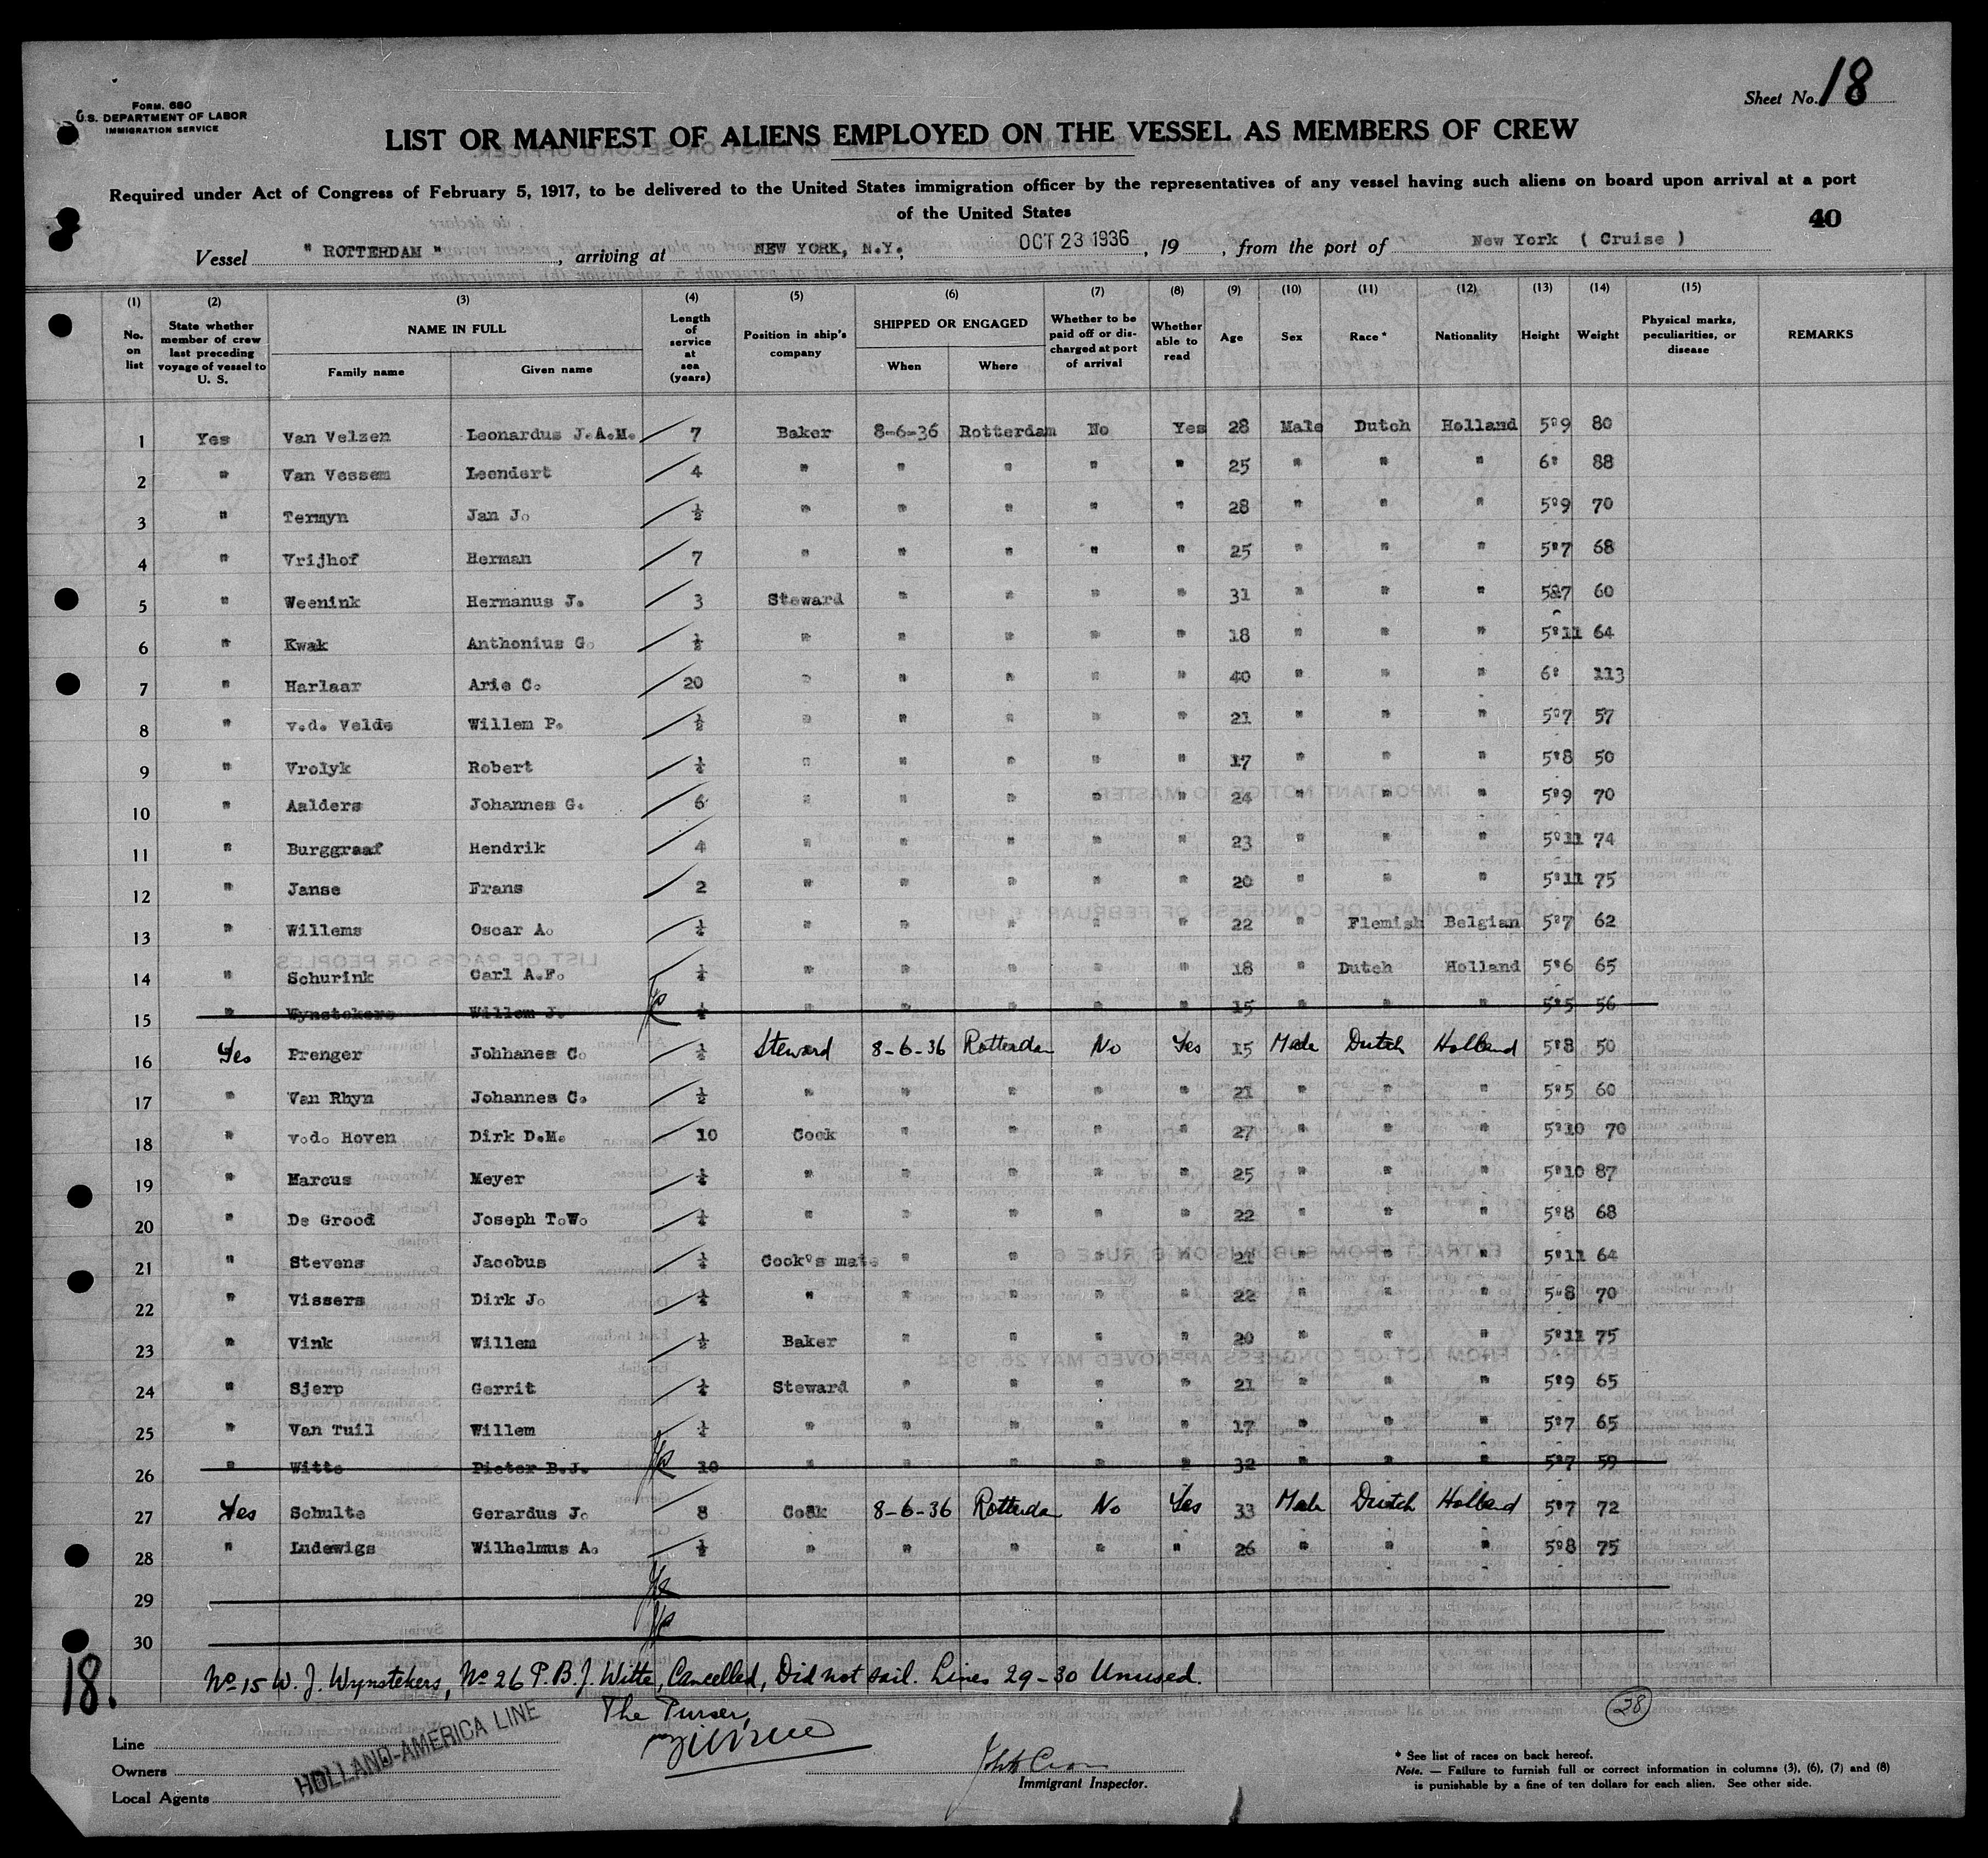 Form. 680
U.S. DEPARTMENT OF LABOR
IMMIGRATION SERVICE
Sheet No. 18
LIST OR MANIFEST OF ALIENS EMPLOYED ON THE VESSEL AS MEMBERS OF CREW
Required under Act of Congress of February 5, 1917, to be delivered to the United States immigration officer by the representatives of any vessel having such aliens on board upon arrival at a port
of the United States
40
Vessel " ROTTERDAM ", arriving at NEW YORK, N.Y., OCT 23 1936, 19 , from the port of New York ( Cruise )
(1) (2) (3) (4) (5) (6) (7) (8) (9) (10) (11) (12) (13) (14) (15)
No. on list State whether member of crew last preceding voyage of vessel to U. S. NAME IN FULL Family name Given name Length of service at sea (years) Position in ship's company SHIPPED OR ENGAGED When Where Whether to be paid off or discharged at port of arrival Whether able to read Age Sex Race * Nationality Height Weight Physical marks, peculiarities, or disease REMARKS
1 Yes Van Velzen Leonardus J.A.M. 7 Baker 8-6-36 Rotterdam No Yes 28 Male Dutch Holland 5°9 80
2 " Van Vessem Leendert 4 " " " " " 25 " " " 6° 88
3 " Termyn Jan J. ½ " " " " " 28 " " " 5°9 70
4 " Vrijhof Herman 7 " " " " " 25 " " " 5°7 68
5 " Weenink Hermanus J. 3 Steward " " " " 31 " " " 5°7 60
6 " Kwak Anthonius G. ½ " " " " " 18 " " " 5°11 64
7 " Harlaar Arie C. 20 " " " " " 40 " " " 6° 113
8 " v.d. Velde Willem P. ½ " " " " " 21 " " " 5°7 57
9 " Vrolyk Robert ¼ " " " " " 17 " " " 5°8 50
10 " Aalders Johannes G. 6 " " " " " 24 " " " 5°9 70
11 " Burggraaf Hendrik 4 " " " " " 23 " " " 5°11 74
12 " Janse Frans 2 " " " " " 20 " " " 5°11 75
13 " Willems Oscar A. ¼ " " " " " 22 " Flemish Belgian 5°7 62
14 " Schurink Carl A.F. ¼ " " " " " 18 " Dutch Holland 5°6 65
15 " Wynstekers Willem J. ¼ " " " " " 15 " " " 5°5 56
16 Yes Prenger Johhanes C. ¼ Steward 8-6-36 Rotterdam No Yes 15 Male Dutch Holland 5°8 50
17 " Van Rhyn Johannes C. ½ " " " " " 21 " " " 5°5 60
18 " v.d. Hoven Dirk D.M. 10 Cook " " " " 27 " " " 5°10 70
19 " Marcus Meyer ¼ " " " " " 25 " " " 5°10 87
20 " De Grood Joseph T.W. ¼ " " " " " 22 " " " 5°8 68
21 " Stevens Jacobus ¼ Cook's mate " " " " 21 " " " 5°11 64
22 " Vissers Dirk J. ¼ " " " " " 22 " " " 5°8 70
23 " Vink Willem ½ Baker " " " " 20 " " " 5°11 75
24 " Sjerp Gerrit ¼ Steward " " " " 21 " " " 5°9 65
25 " Van Tuil Willem ¼ " " " " " 17 " " " 5°7 65
26 " Witte Pieter B.J. 10 " " " " " 32 " " " 5°7 59
27 Yes Schulte Gerardus J. 8 Cook 8-6-36 Rotterdam No Yes 33 Male Dutch Holland 5°7 72
28 " Ludewigs Wilhelmus A. ½ " " " " " 26 " " " 5°8 75
29
30
18.
No 15 W. J. Wynstekers, No 26 P. B. J. Witte, Cancelled, Did not sail. Lines 29-30 Unused.
The Purser,
28
Line
Owners
Local Agents
HOLLAND-AMERICA LINE
Immigrant Inspector.
* See list of races on back hereof.
Note. — Failure to furnish full or correct information in columns (3), (6), (7) and (8)
is punishable by a fine of ten dollars for each alien. See other side.